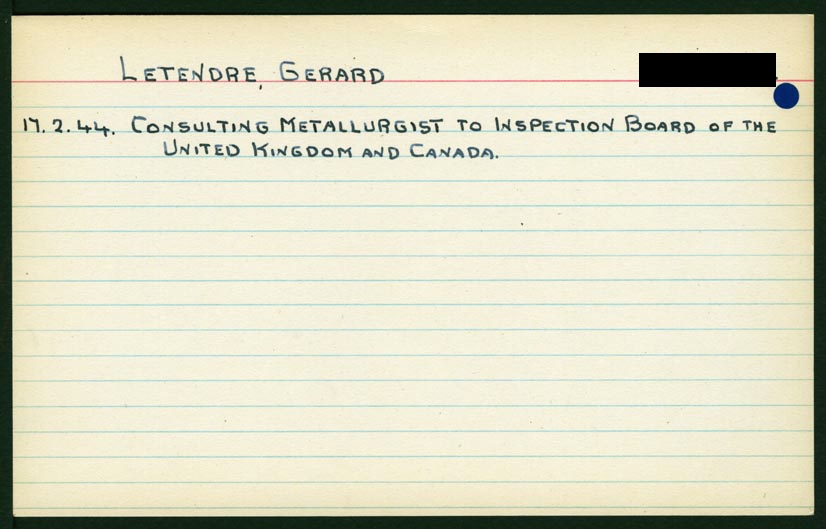 LETENDRE, GERARD
17.2.44. CONSULTING METALLURGIST TO INSPECTION BOARD OF THE
UNITED KINGDOM AND CANADA.